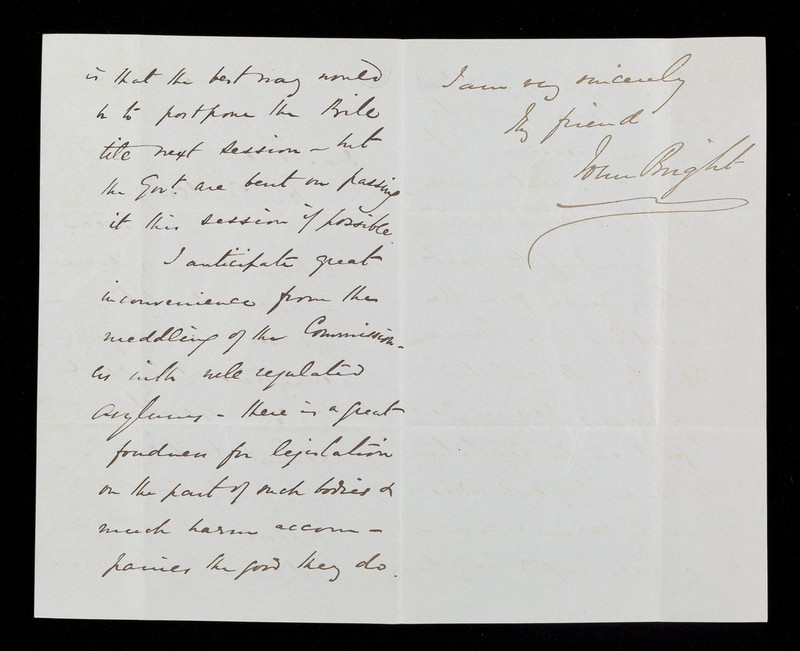 is that the best way would
be to postpone the Bill
till next session – but
the Govt. are bent on passing
it this session if possible.
I anticipate great
inconvenience from the
meddling of the Commission-
ers with well regulated
Asylums – there is a great
fondness for legislation
on the part of such bodies &
much harm accom-
panies the good they do.
I am very sincerely
Thy friend
John Bright